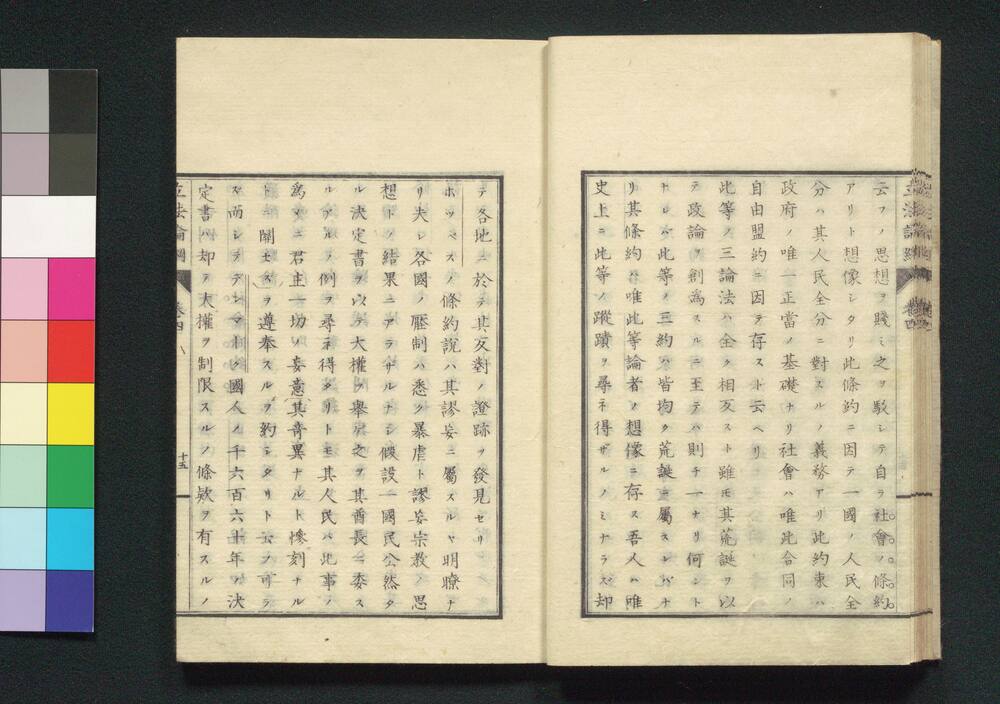 云フノ思想ヲ賤ミ之ヲ駁シテ自ラ社會ノ條約
アリト想像シタリ此條約ニ因テ一國ノ人民全
分ハ其人民全分ニ對スルノ義務アリ此約束ハ
政府ノ唯一正當ノ基礎ナリ社會ハ唯此合同ノ
自由盟約ニ因テ存スト云ヘリ
此等ノ三論法ハ全ク相反スト雖モ其荒誕ヲ以
テ政論ヲ創為スルニ至テハ則チ一ナリ何ント
ナレバ此等ノ三約ハ皆均ク荒誕ニ屬スレバナ
リ其條約ハ唯此等論者ノ想像ニ存ス吾人ハ唯
史上ニ此等ノ蹤蹟ヲ尋ネ得ザルノミナラズ却
テ各地ニ於テ其反對ノ證跡ヲ發見セリ
ホッベスノ條約說ハ其謬妄ニ屬スルヤ明瞭ナ
リ夫レ各國ノ壓制ハ悉ク暴虐ト謬妄宗教ノ思
想トノ結果ニアラザルナシ假設一國民公然タ
ル決定書ヲ以テ大權ヲ舉ゲ之ヲ其酋長ニ委ス
ルアルノ例ヲ尋ネ得タリトモ其人民ハ此事ノ
為メニ君主一切ノ妄意其奇異ナルト慘刻ナル
トニ關セスヲ遵奉スルヲ約シタリト云フ可ラ
ズ而シテデンマーク國人ノ千六百六十年ノ決
定書ハ却テ大權ヲ制限スルノ條欵ヲ有スルノ
立法論綱
卷四
八
十五